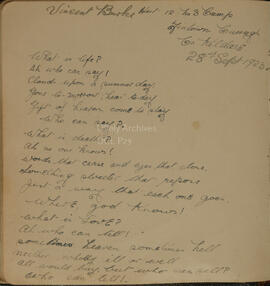 Vincent Burke Hut 12 No 3 Camp
Tintown Curragh
Co Kildare
28th Sept 1923
What is life?
Ah who can say!
Clouds upon a summer day
Gone to-morrow, hear to-day
Gift of heaven come to stay
Who can say?
What is death?
Ah no one knows!
words that cease and eyes that close,
something that
just a way that each one goes.
Where, good knows!
What is Love?
Ah who can tell!
sometimes heaven sometimes hell
neither wholly ill or well
all would buy but who can sell?
Who can tell!
Archives
P27